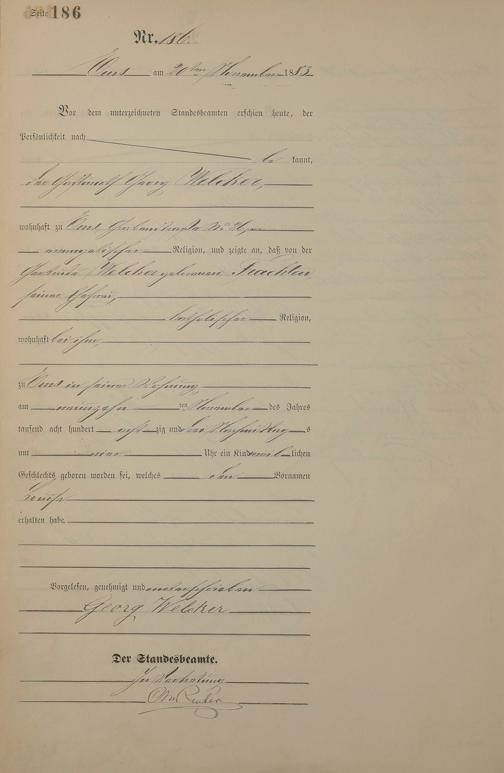 Seite 186
Nr. 186
Ems am 20ten November 1883
Vor dem unterzeichneten Standesbeamten erschien heute, der
Persönlichkeit nach
be kannt,
der Gastwirth Georg Welcker,
wohnhaft zu Ems
evangelischer Religion, und zeigte an, daß von der
Welcker geborenen
seiner Ehefrau,
katholischer Religion,
wohnhaft bei ihm,
zu Ems in seiner Wohnung
am neunzehnten November des Jahres
tausend acht hundert acht zig und drei Nachmittag s
um Uhr ein Kind weiblichen
Geschlechts geboren worden sei, welches den Vornamen
erhalten habe.
Vorgelesen, genehmigt und unterschrieben
Georg Welcker
Der Standesbeamte.
In Vertretung